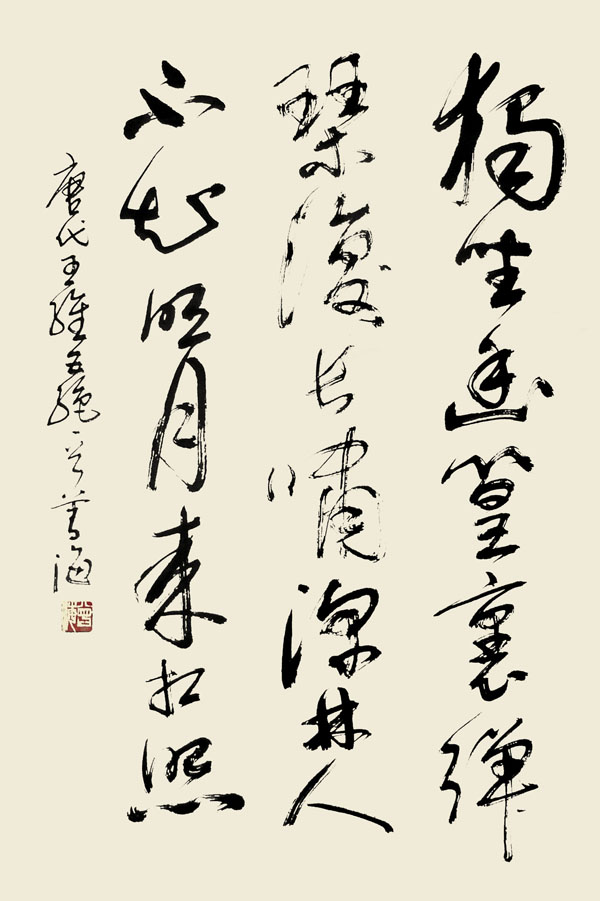 獨坐幽篁裏彈
琴復长嘯深林人
不知明月來相照
唐代王維五絕一首海